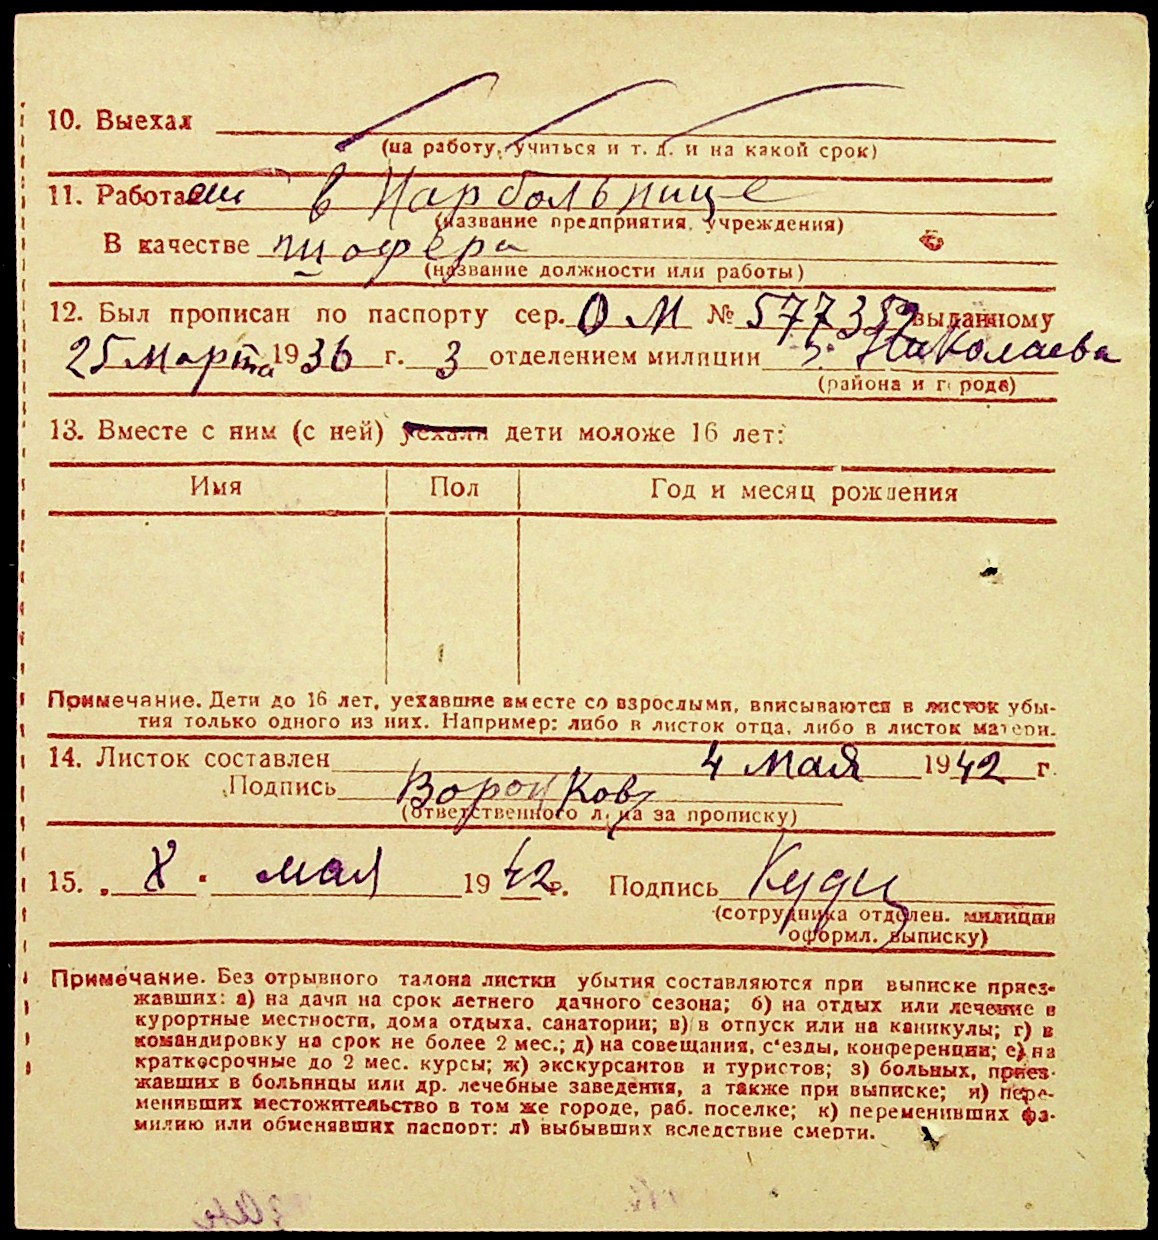 10. Выехал
(на работу, учиться и т. д. и на какой срок)
11. Работа в Нарбольнице
(название предприятия, учреждения)
В качестве шофера
(название должности или работы)
12. Был прописан по паспорту сер. ОМ № 577359 выданному
25 марта 1936 г. 3 отделением милиции г. Николаева
(района и города)
13. Вместе с ним (с ней) уехали дети моложе 16 лет:
Имя Пол Год и месяц рождения
Примечание. Дети до 16 лет, уехавшие вместе со взрослыми, вписываются в листок убы-
тия только одного из них. Например: либо в листок отца, либо в листок матери.
14. Листок составлен 4 мая 1942 г.
Подпись
(ответственного лица за прописку)
15. 8. мая 1942 г. Подпись
(сотрудника отделен. милиции
оформл. выписку)
Примечание. Без отрывного талона листки убытия составляются при выписке приез-
жавших: а) на дачи на срок летнего дачного сезона; б) на отдых или лечение в
курортные местности, дома отдыха, санатории; в) в отпуск или на каникулы; г) в
командировку на срок не более 2 мес.; д) на совещания, с'езды, конференции; е) на
краткосрочные до 2 мес. курсы; ж) экскурсантов и туристов; з) больных, приез-
жавших в больницы или др. лечебные заведения, а также при выписке; и) пере-
менивших местожительство в том же городе, раб. поселке; к) переменивших фа-
милию или обменявших паспорт: л) выбывших вследствие смерти.